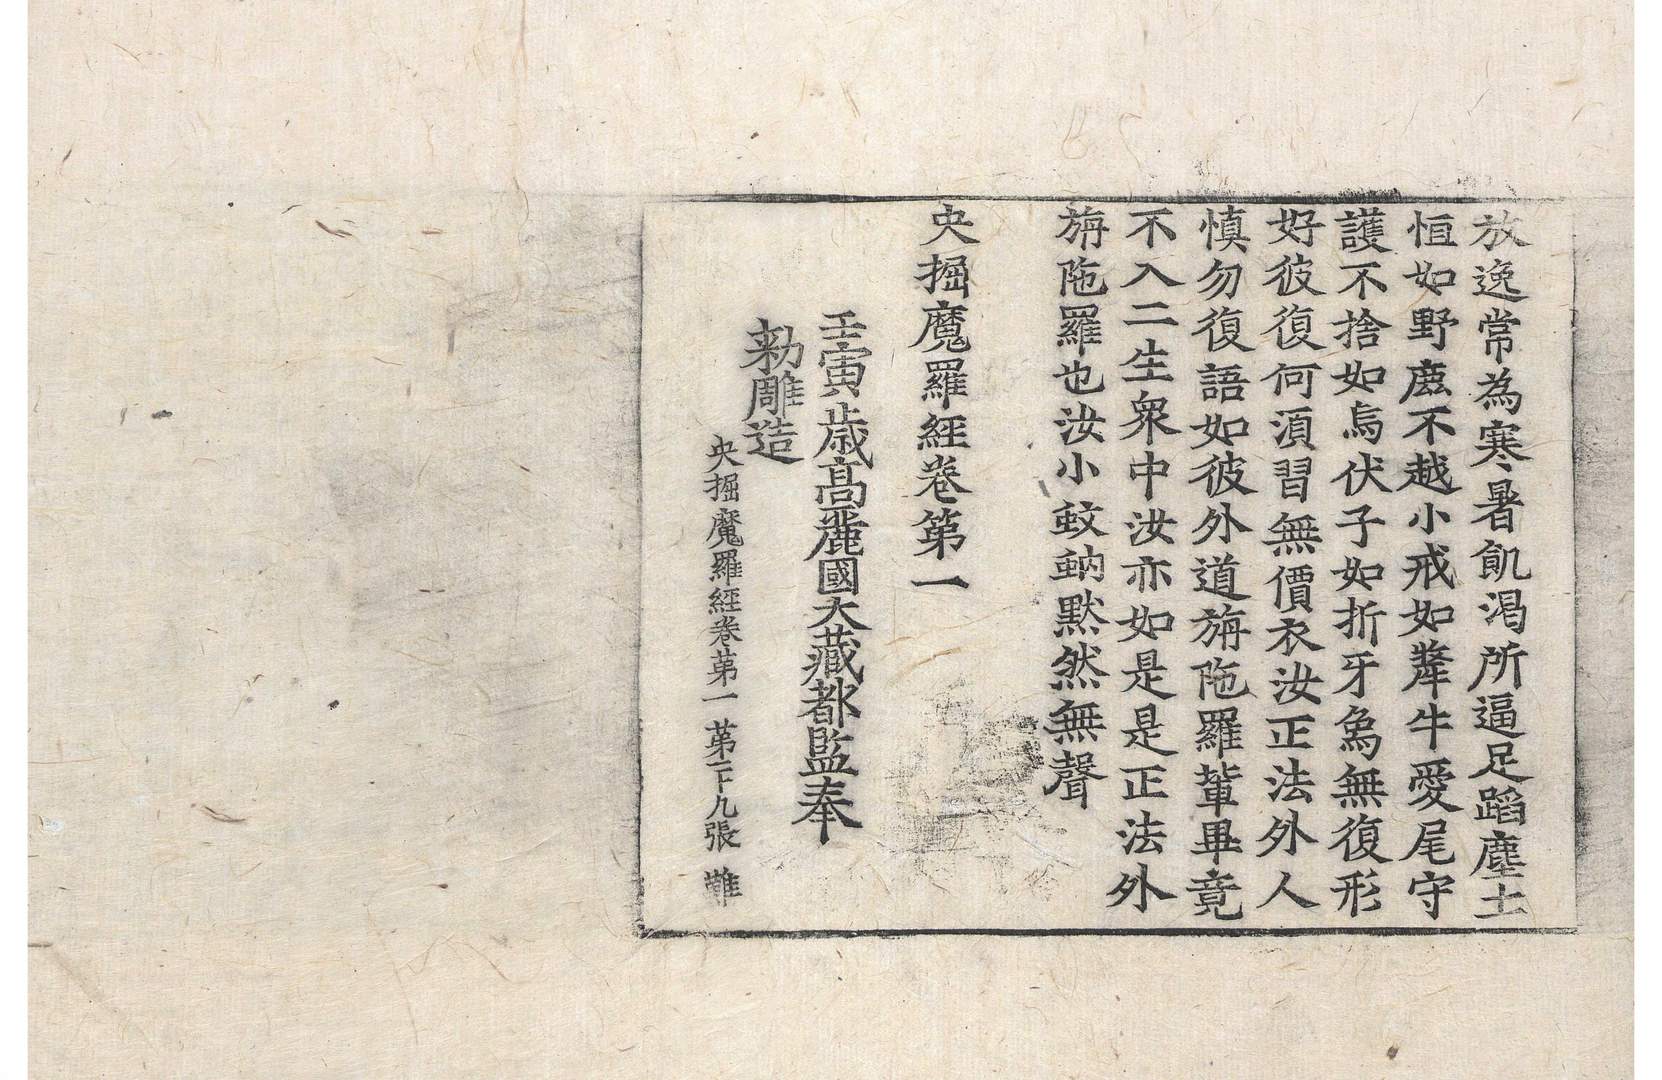 放逸常為寒暑飢渴所逼足蹈塵土
恒如野鹿不越小戒如犛牛愛尾守
護不捨如烏伏子如折牙象無復形
好彼復何須習無價衣汝正法外人
慎勿復語如彼外道旃陁羅輩畢竟
不入二生衆中汝亦如是是正法外
旃陁羅也汝小蚊蚋默然無聲
央掘魔羅經卷第一
壬寅歲高麗國大藏都監奉
勅雕造
央掘魔羅經卷第一 第二十九張 難